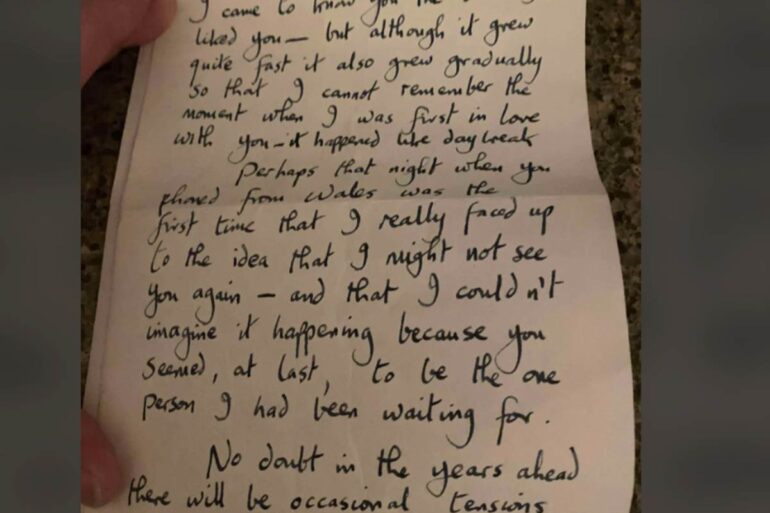 I came to know you the
liked you — but although it grew
quite fast it also grew gradually
so that I cannot remember the
moment when I was first in love
with you – it happened like daybreak
Perhaps that night when you
phoned from Wales was the
first time that I really faced up
to the idea that I might not see
you again — and that I couldn't
imagine it happening because you
seemed, at last, to be the one
person I had been waiting for.
No doubt in the years ahead
there will be occasional tensions